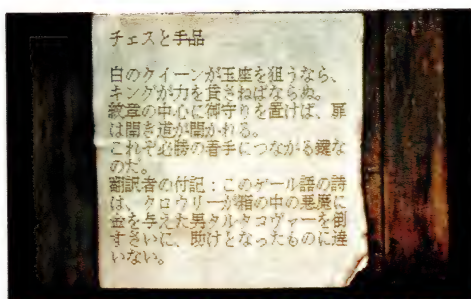 チェスと手品
白のクイーンが玉座を狙うなら、
キングが力を貸さねばならぬ。
紋章の中心に御守りを置けば、扉
は開き道が開かれる。
これぞ必勝の着手につながる鍵な
のだ。
翻訳者の付記：このゲール語の詩
は、クロウリーが箱の中の悪魔に
金を与えた男タルタコヴァーを倒
すさいに、助けとなったものに違
いない。